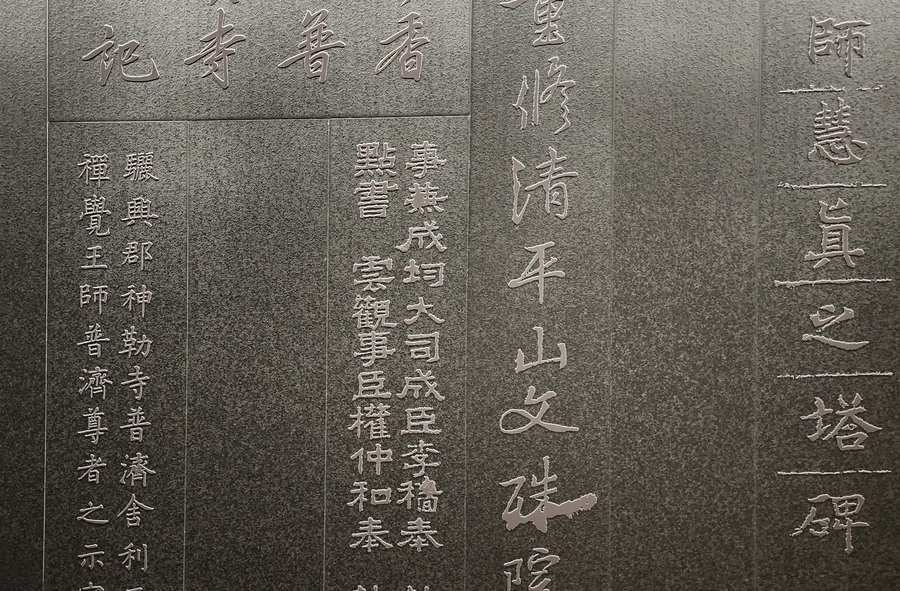 師慧眞之塔碑
重修清平山文殊院
香普寺記
事兼成均大司成臣李穡奉
點書 雲觀事臣權仲和奉
驪興郡神勒寺普濟舍利
禪覺王師普濟尊者之示